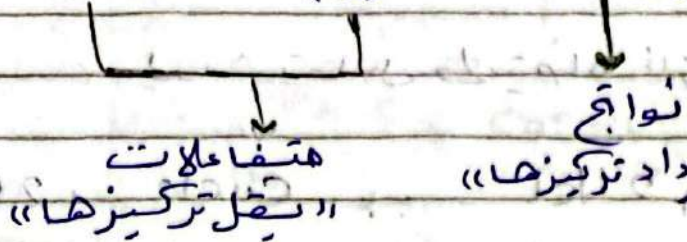 نواتج
داد تركيزها»
متفاعلات
«يقل تركيزها»